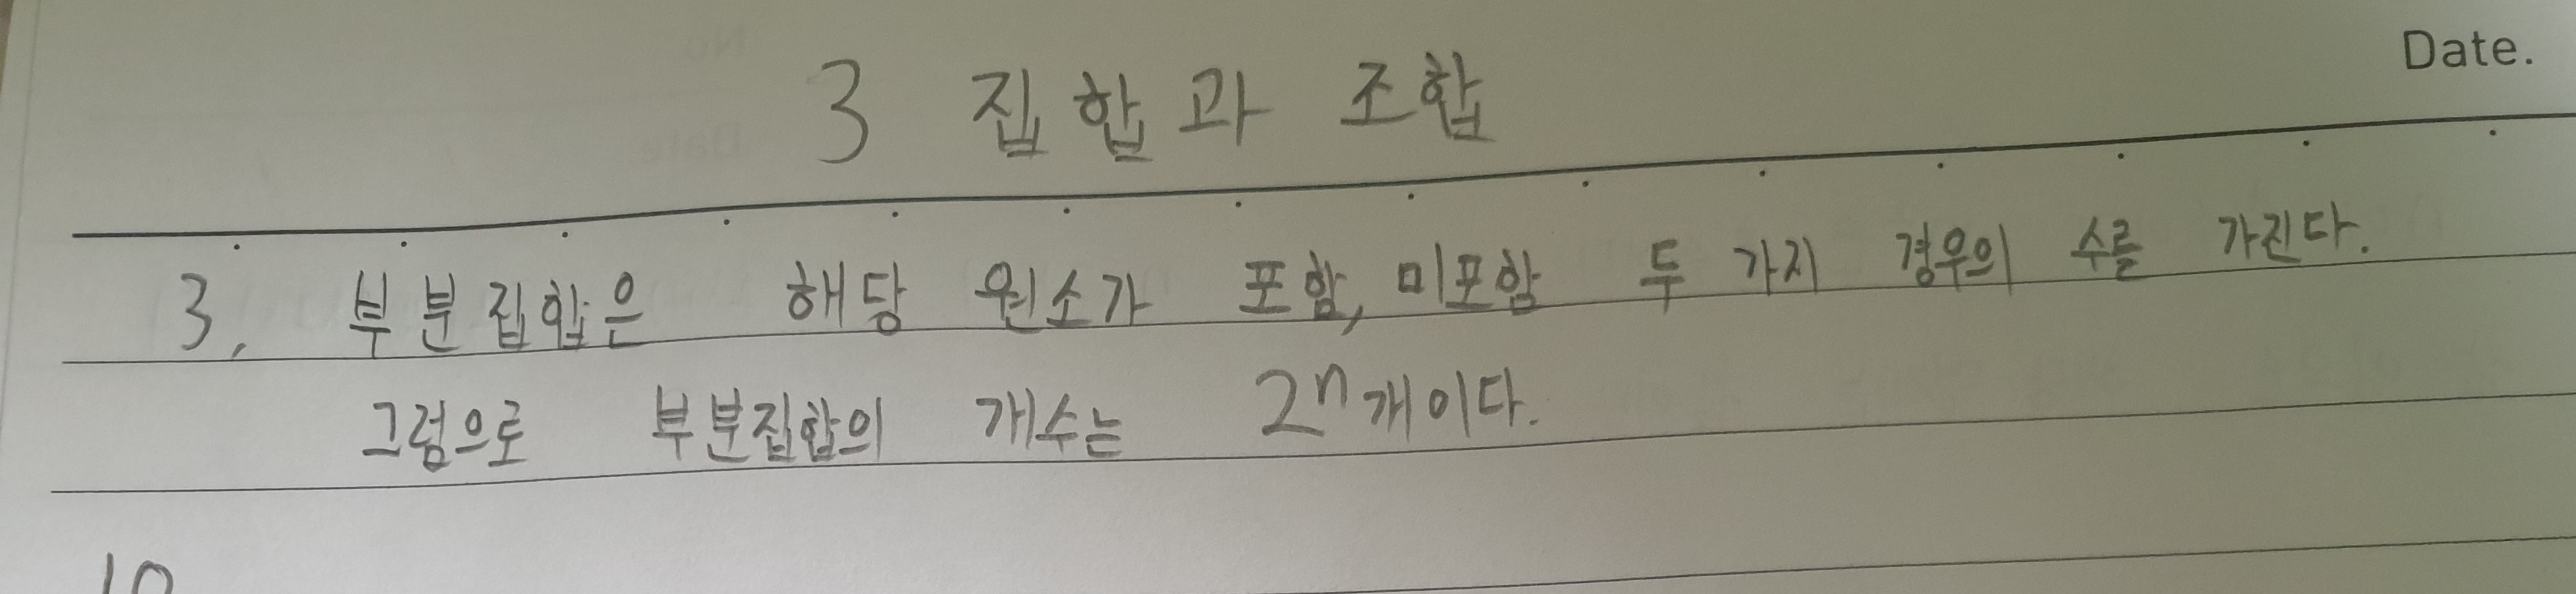 Date.
3 집합과 조합
3, 부분집합은 해당 원소가 포함, 미포함 두 가지 경우의 수를 가진다.
그럼으로 부분집합의 개수는 2ⁿ개이다.
10